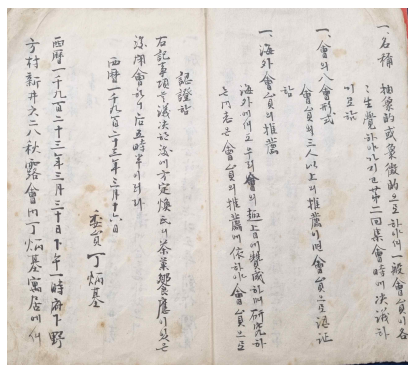 一. 名稱 抽象的或象徵的으로하야 一般會員이各
々生覺하야가지고 第二回集會時에決議하
기로함
一. 會의入會形式
會員의三人以上의推薦이면 會員으로認定
함
一. 海外會員의推薦
海外에잇고우리會의趣旨에贊成하며研究하
는同志은會員의推薦에依하야會員으로
認證함
右記事項을議決한後에方定煥氏의茶菓饗應이잇은
後閉會하니后五時半이러라
西曆一千九百二十三年三月十六日
委員 丁炳基
西曆一千九百二十三年三月三十日下午一時府下野
方村新井六二八秋露會內丁炳基寓居에서